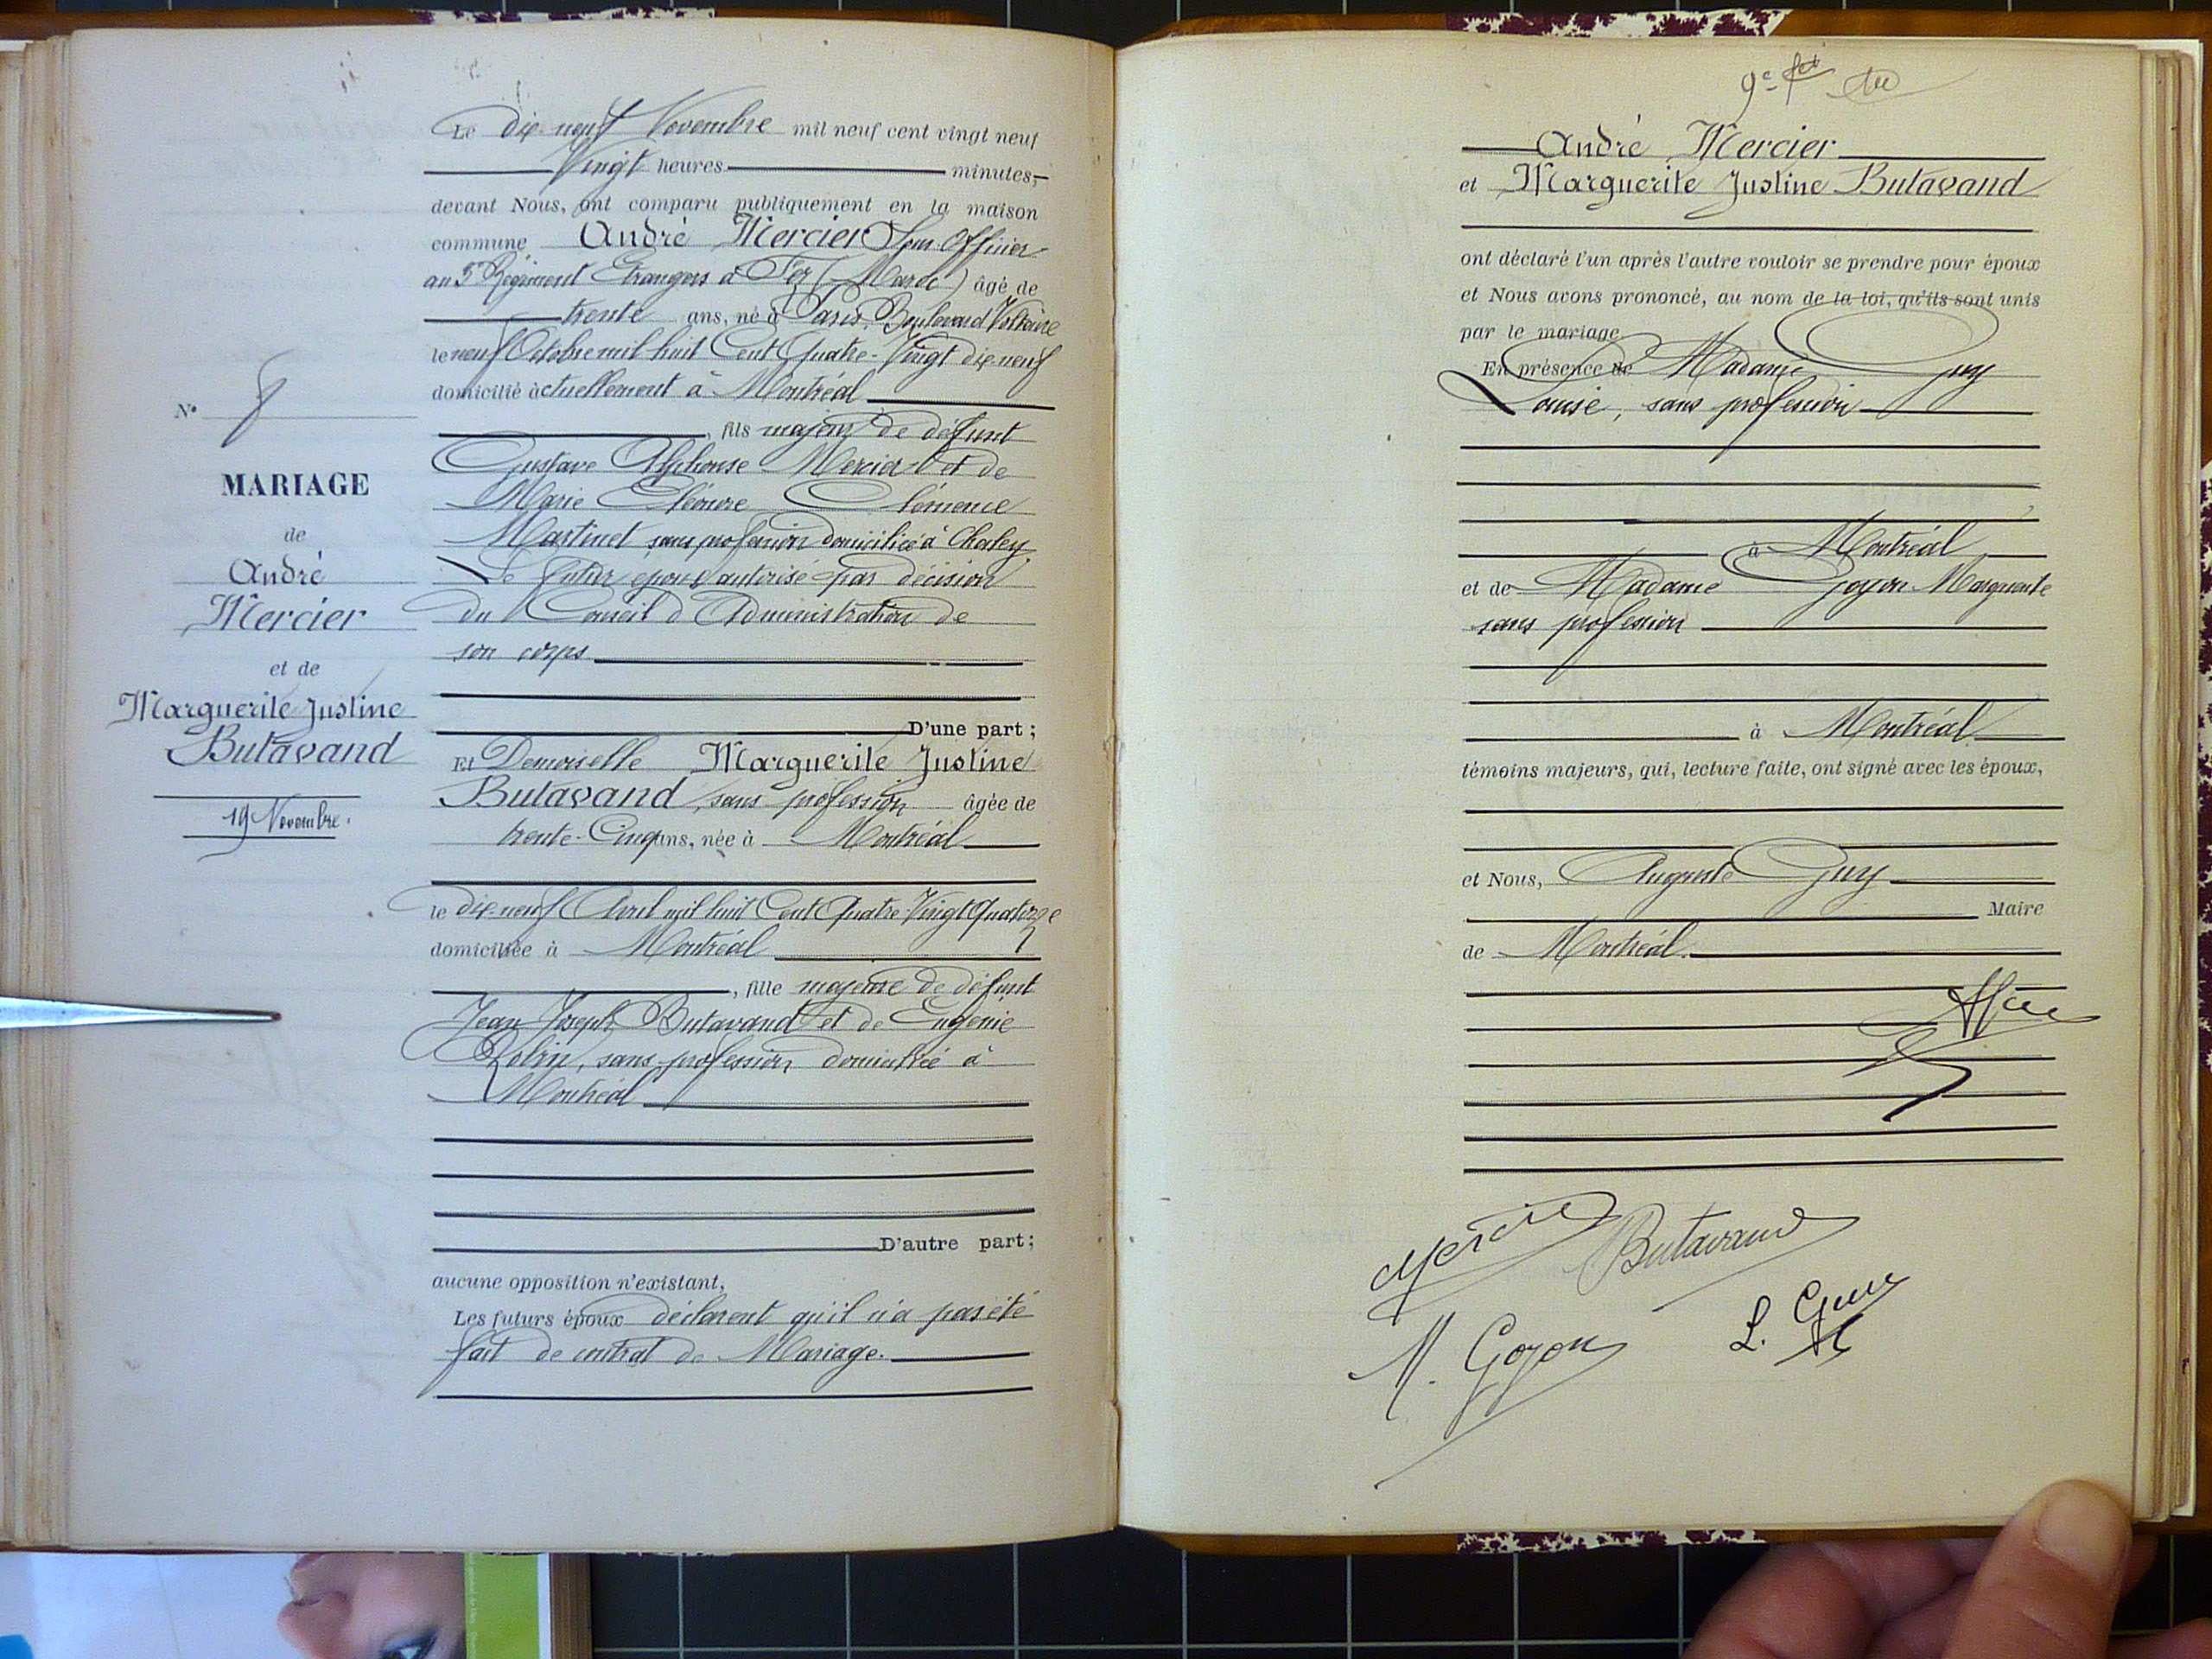 N° 8
MARIAGE
de
André
Mercier
et de
Marguerite Justine
Butavand
19 Novembre.
Le dix-neuf Novembre mil neuf cent vingt neuf
Vingt heures minutes,
devant Nous, ont comparu publiquement en la maison
commune André Mercier Sous-Officier
au 3e Régiment Etrangers à Fez (Maroc) âgé de
trente ans, né à Paris, Boulevard Voltaire
le neuf Octobre mil huit Cent Quatre-Vingt dix-neuf
domicilié actuellement à Montréal
, fils majeur de défunt
Gustave Alphonse Mercier et de
Marie Eléonore Clémence
Martinet sans profession domiciliée à Chaley
Le futur époux autorisé par décision
du Conseil d'Administration de
son corps
D'une part ;
Et Demoiselle Marguerite Justine
Butavand, sans profession âgée de
trente-Cinq ans, née à Montréal
le dix-neuf Avril mil huit Cent Quatre-Vingt Quatorze
domiciliée à Montréal
, fille majeure de défunt
Jean Joseph Butavand et de Eugénie
Robin, sans profession domiciliée à
Montréal
D'autre part ;
aucune opposition n'existant,
Les futurs époux déclarent qu'il n'a pas été
fait de contrat de Mariage.
André Mercier
et Marguerite Justine Butavand
ont déclaré l'un après l'autre vouloir se prendre pour époux
et Nous avons prononcé, au nom de la loi, qu'ils sont unis
par le mariage
En présence de Madame Guy
Louise, sans profession
à Montréal
et de Madame Goyon Marguerite
sans profession
à Montréal
témoins majeurs, qui, lecture faite, ont signé avec les époux,
et Nous, Auguste Guy
Maire
de Montréal.
Mercier
Butavand
M. Goyon
L. Guy